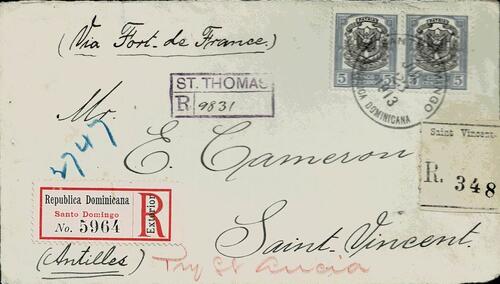 (Via Fort. de France.)
CORREOS
5 5 5 5
REPUBLICA DOMINICANA
1913
ST. THOMAS
R 9831
Mr.
E. Cameron
4747
Saint Vincent.
R. 348
Republica Dominicana
Santo Domingo
No. 5964
R
Exterior
Saint-Vincent.
(Antilles)
Try St Lucia